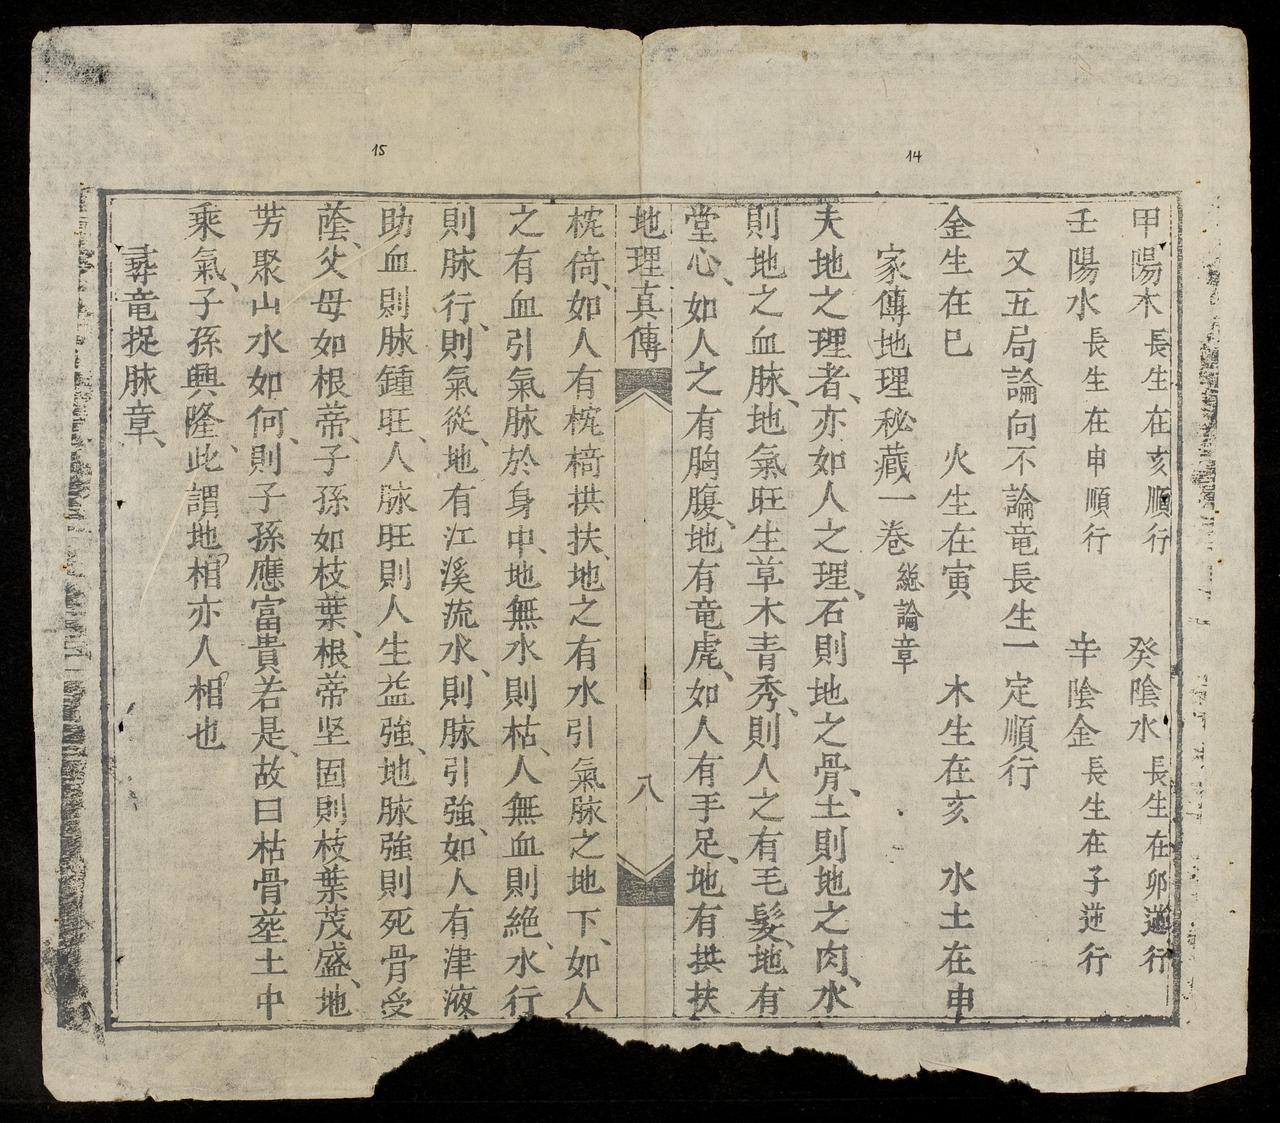 14
甲陽木 長生在亥順行 癸陰水 長生在卯逆行
壬陽水 長生在申順行 辛陰金 長生在子逆行
又五局論向不論竜長生一定順行
金生在巳 火生在寅 木生在亥 水土在申
家傳地理秘藏一卷 総論章
夫地之理者、亦如人之理、石則地之骨、土則地之肉、水
則地之血脉、地氣旺生草木青秀、則人之有毛髮、地有
堂心、如人之有胸腹、地有竜虎、如人有手足、地有拱扶
地理真傳 八
15
枕倚、如人有枕椅拱扶、地之有水引氣脉之地下、如人
之有血引氣脉於身中、地無水則枯、人無血則絶、水行
則脉行、則氣從、地有江溪流水、則脉引強、如人有津液
助血則脉鍾旺、人脉旺則人生益強、地脉強則死骨受
蔭、父母如根帝、子孫如枝葉、根蒂坚固則枝葉茂盛、地
芳聚山水如何、則子孫應富貴若是、故曰枯骨塟土中
乘氣、子孫興隆、此謂地相亦人相也
尋竜捉脉章、